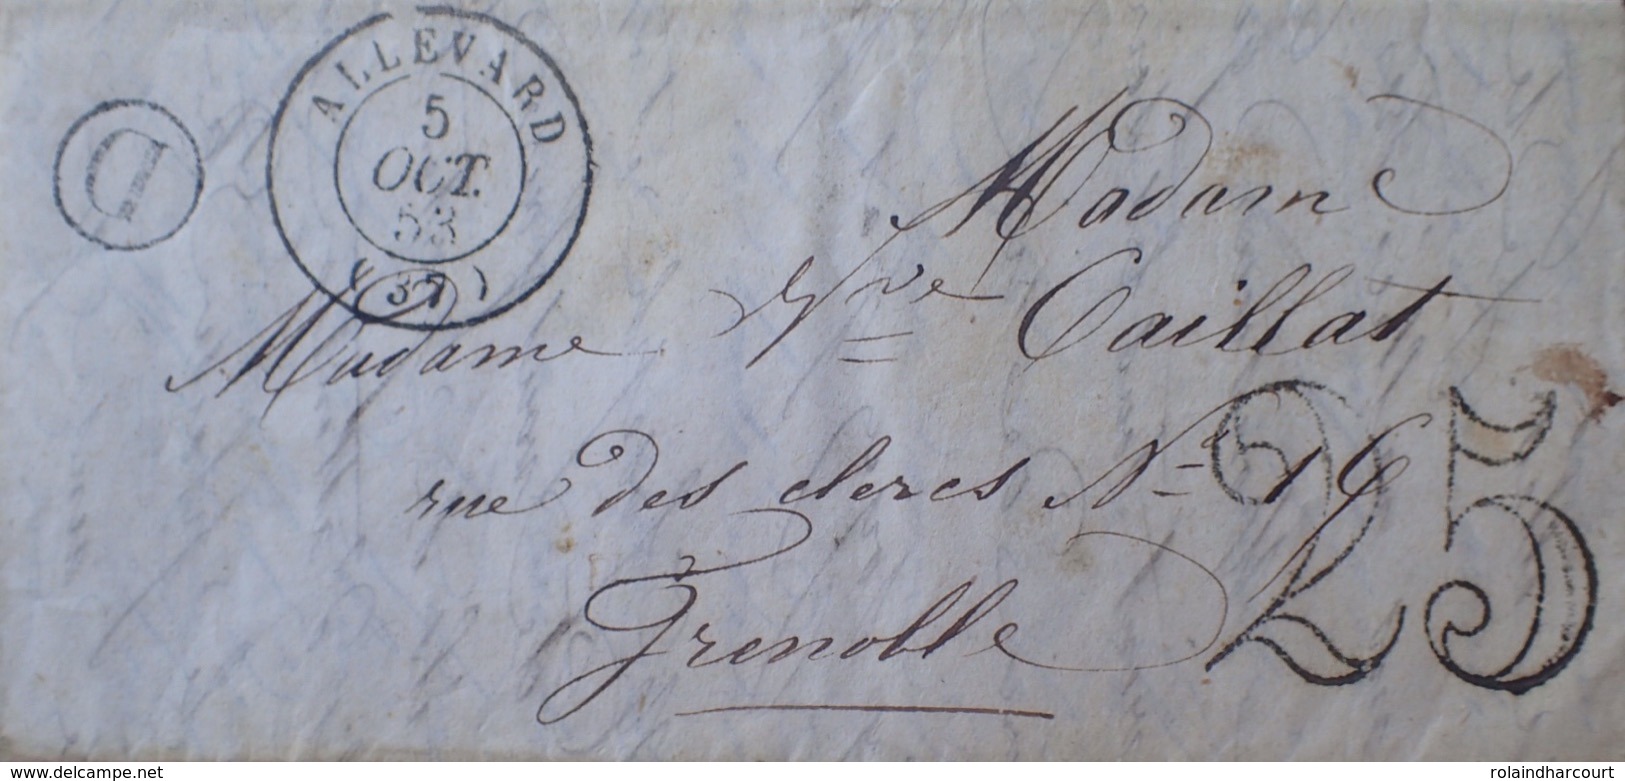 ALLEVARD
5
OCT.
53
(37)
D
Madame
Madame Vve Caillat
rue des clercs No 16
Grenoble
25
www.delcampe.net
rolaindharcourt